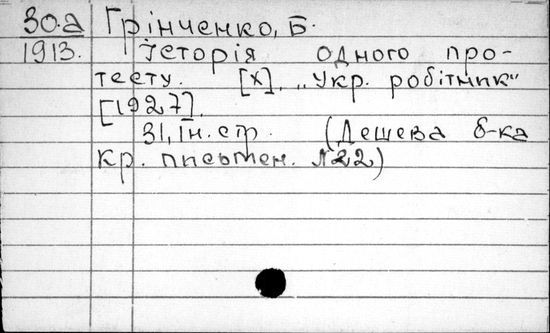 30.а Грінченко, Б.
1913. Історія одного про-
тесту. [Х]. „Укр. робітник"
[1927].
31, ІН. стр. (Дешева б-ка
кр. письмен. №22)